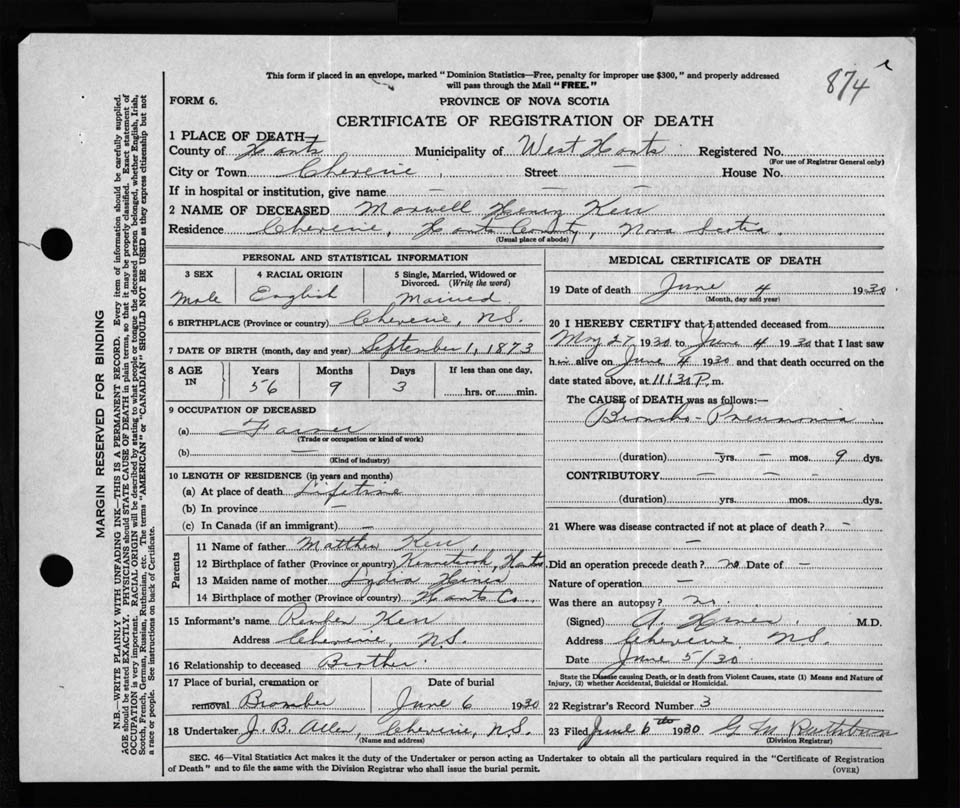 874
This form if placed in an envelope, marked "Dominion Statistics—Free, penalty for improper use $300," and properly addressed
will pass through the Mail "FREE."
FORM 6.
PROVINCE OF NOVA SCOTIA
CERTIFICATE OF REGISTRATION OF DEATH
1 PLACE OF DEATH
County of Hants Municipality of West Hants Registered No.
(For use of Registrar General only)
City or Town Cheverie, Street — House No.
If in hospital or institution, give name — — —
2 NAME OF DECEASED Maxwell Henry Kerr
Residence Cheverie, Hants County, Nova Scotia.
(Usual place of abode)
PERSONAL AND STATISTICAL INFORMATION
3 SEX 4 RACIAL ORIGIN 5 Single, Married, Widowed or
Divorced. (Write the word)
Male English Married
6 BIRTHPLACE (Province or country) Cheverie, N.S.
7 DATE OF BIRTH (month, day and year) September 1, 1873
8 AGE IN Years Months Days If less than one day,
56 9 3 hrs. or min.
9 OCCUPATION OF DECEASED
(a) Farmer
(Trade or occupation or kind of work)
(b) —
(Kind of industry)
10 LENGTH OF RESIDENCE (in years and months)
(a) At place of death Lifetime
(b) In province —
(c) In Canada (if an immigrant) —
Parents
11 Name of father Matthew Kerr
12 Birthplace of father (Province or country) Kennetcook, Hants
13 Maiden name of mother Lydia Hines
14 Birthplace of mother (Province or country) Hants Co.
15 Informant's name Reuben Kerr
Address Cheverie, N.S.
16 Relationship to deceased Brother.
17 Place of burial, cremation or Date of burial
removal June 6 1930
18 Undertaker J. B. Allen, Cheverie, N.S.
(Name and address)
MEDICAL CERTIFICATE OF DEATH
19 Date of death June 4 1930
(Month, day and year)
20 I HEREBY CERTIFY that I attended deceased from
May 27 1930 to June 4 1930 that I last saw
him alive on June 4 1930 and that death occurred on the
date stated above, at 11:30 P.m.
The CAUSE of DEATH was as follows:—
Broncho-Pneumonia
(duration) — yrs. — mos. 9 dys.
CONTRIBUTORY — — —
(duration) yrs. mos. dys.
21 Where was disease contracted if not at place of death? —
—
Did an operation precede death? no Date of —
Nature of operation —
Was there an autopsy? no
(Signed) A. M.D.
Address Cheverie N.S.
Date June 5/30
State the Disease causing Death, or in death from Violent Causes, state (1) Means and Nature of
Injury, (2) whether Accidental, Suicidal or Homicidal.
22 Registrar's Record Number 3
23 Filed June 6th 1930 G M
(Division Registrar)
SEC. 46—Vital Statistics Act makes it the duty of the Undertaker or person acting as Undertaker to obtain all the particulars required in the "Certificate of Registration
of Death" and to file the same with the Division Registrar who shall issue the burial permit.
(OVER)
MARGIN RESERVED FOR BINDING
N.B.—WRITE PLAINLY WITH UNFADING INK—THIS IS A PERMANENT RECORD. Every item of information should be carefully supplied.
AGE should be stated EXACTLY. PHYSICIANS should STATE CAUSE OF DEATH in plain terms, so that it may be properly classified. Exact statement of
OCCUPATION is very important. RACIAL ORIGIN will be described by stating to what people or tongue the deceased person belonged, whether English, Irish,
Scotch, French, German, Russian, Ruthenian, etc. The terms "AMERICAN" or "CANADIAN" SHOULD NOT BE USED as they express citizenship but not
a race or people. See instructions on back of Certificate.